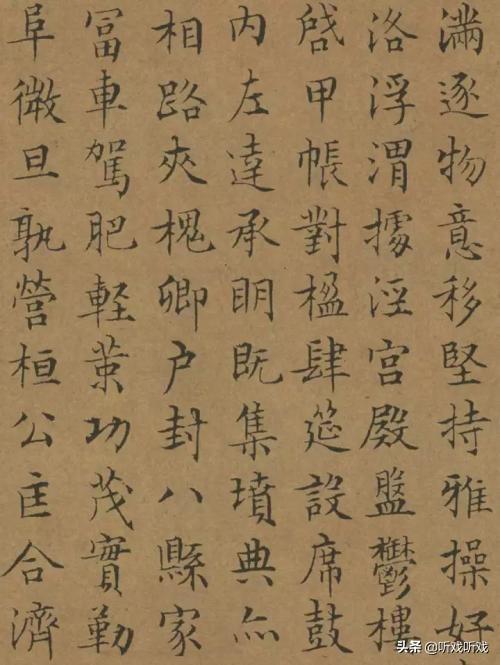 滿逐物意移堅持雅操好
洛浮渭據涇宮殿盤鬱樓
啓甲帳對楹肆筵設席鼓
内左達承眀既集墳典亦
相路夾槐卿户封八縣家
冨車駕肥軽策功茂實勒
阜微旦孰營桓公匡合濟
头条 @听戏听戏